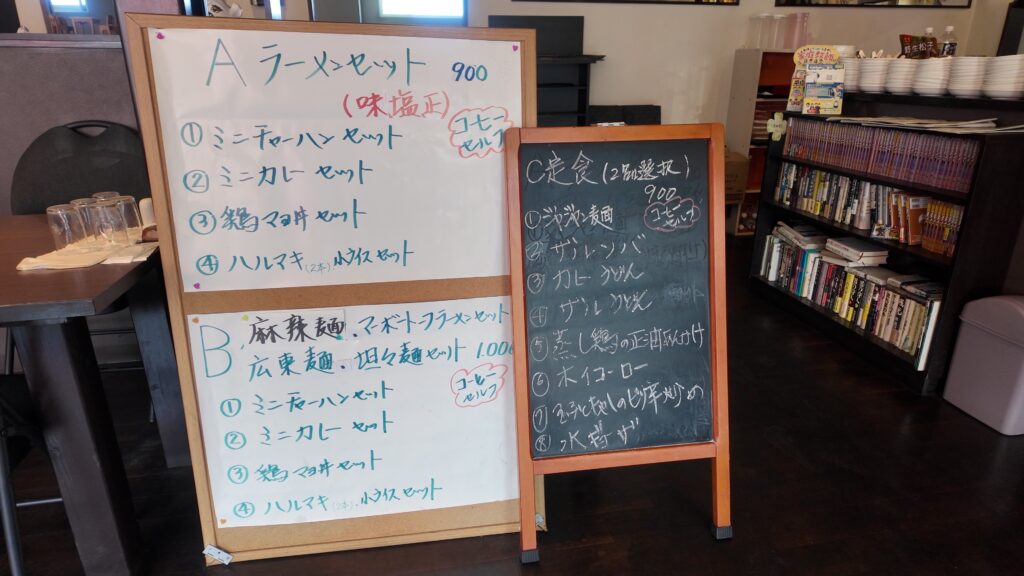 A ラーメンセット 900
(味塩正)
① ミニチャーハンセット
コーヒー
セルフ
② ミニカレーセット
③ 鶏マヨ丼セット
④ ハルマキ(2本)小ライスセット
B 麻辣麺、マーボートーフラーメンセット
広東麺、坦々麺セット 1.000
コーヒー
セルフ
① ミニチャーハンセット
② ミニカレーセット
③ 鶏マヨ丼セット
④ ハルマキ(2本)、小ライスセット
C定食(2品選択)
900
コーヒー
セルフ
① 麺
② ザルソバ
③ カレーうどん
④ ザルうどん
⑤ 蒸し鶏の
⑥ ホイコーロー
⑦ のピリ辛炒め
⑧ 水ギョーザ